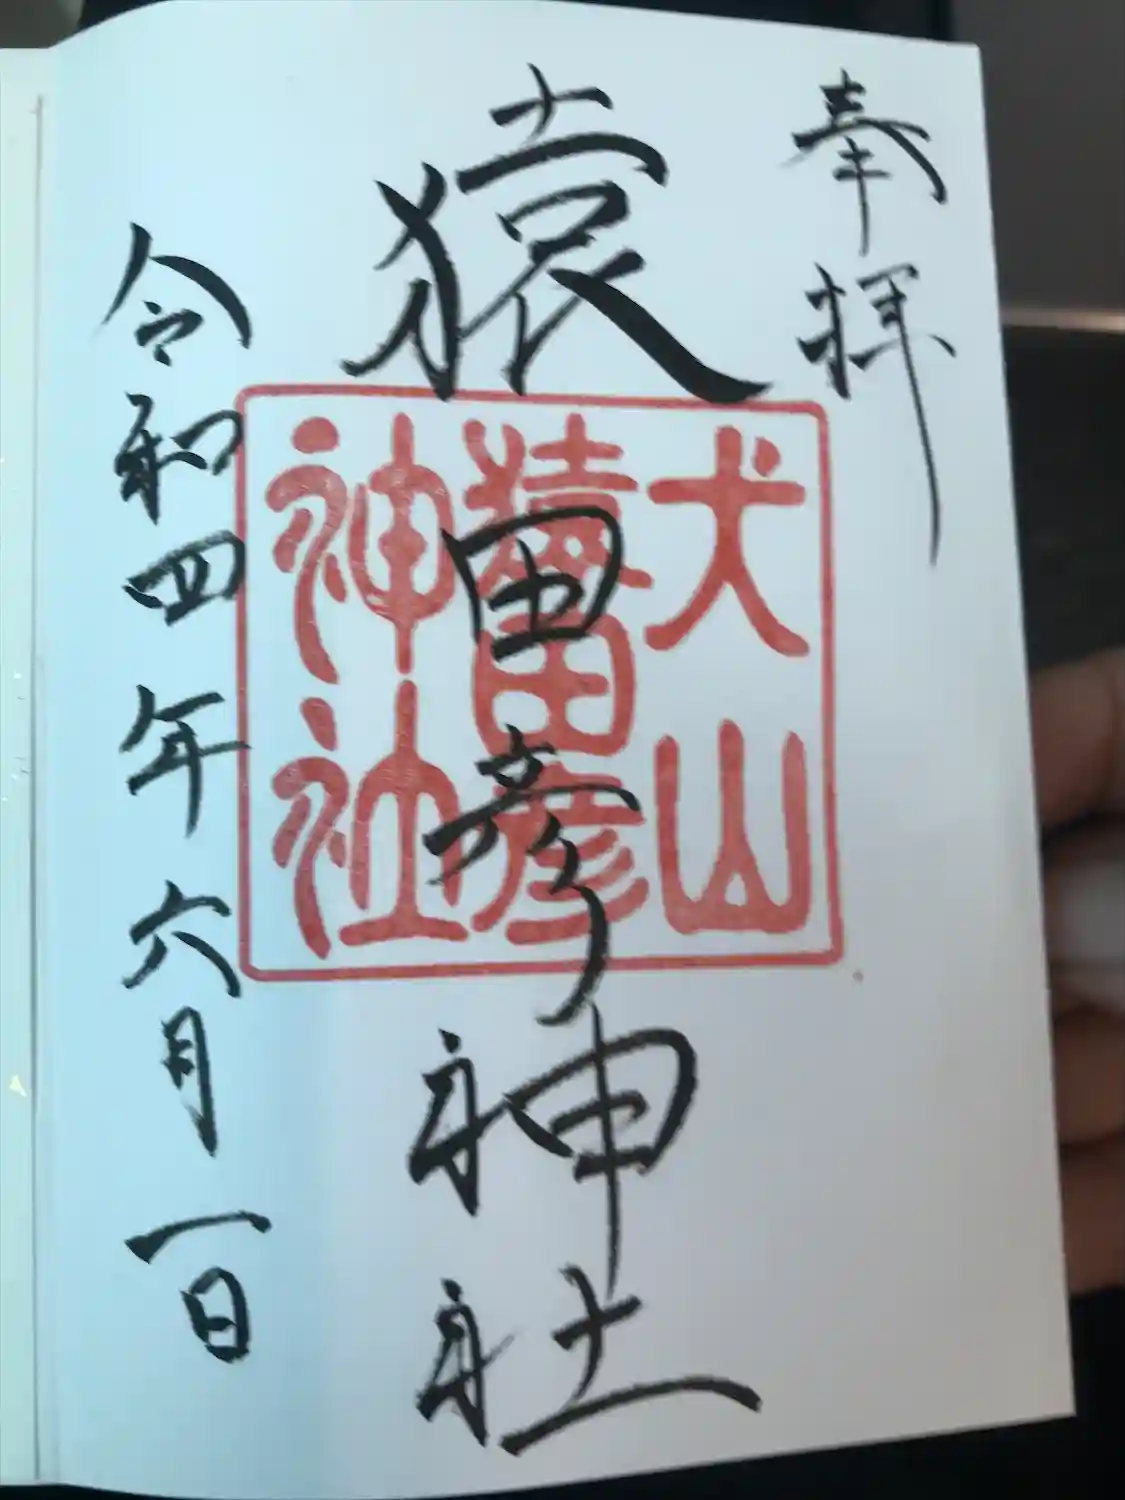 奉拝
犬山
猿田彦
神社
猿田彦神社
令和四年六月一日